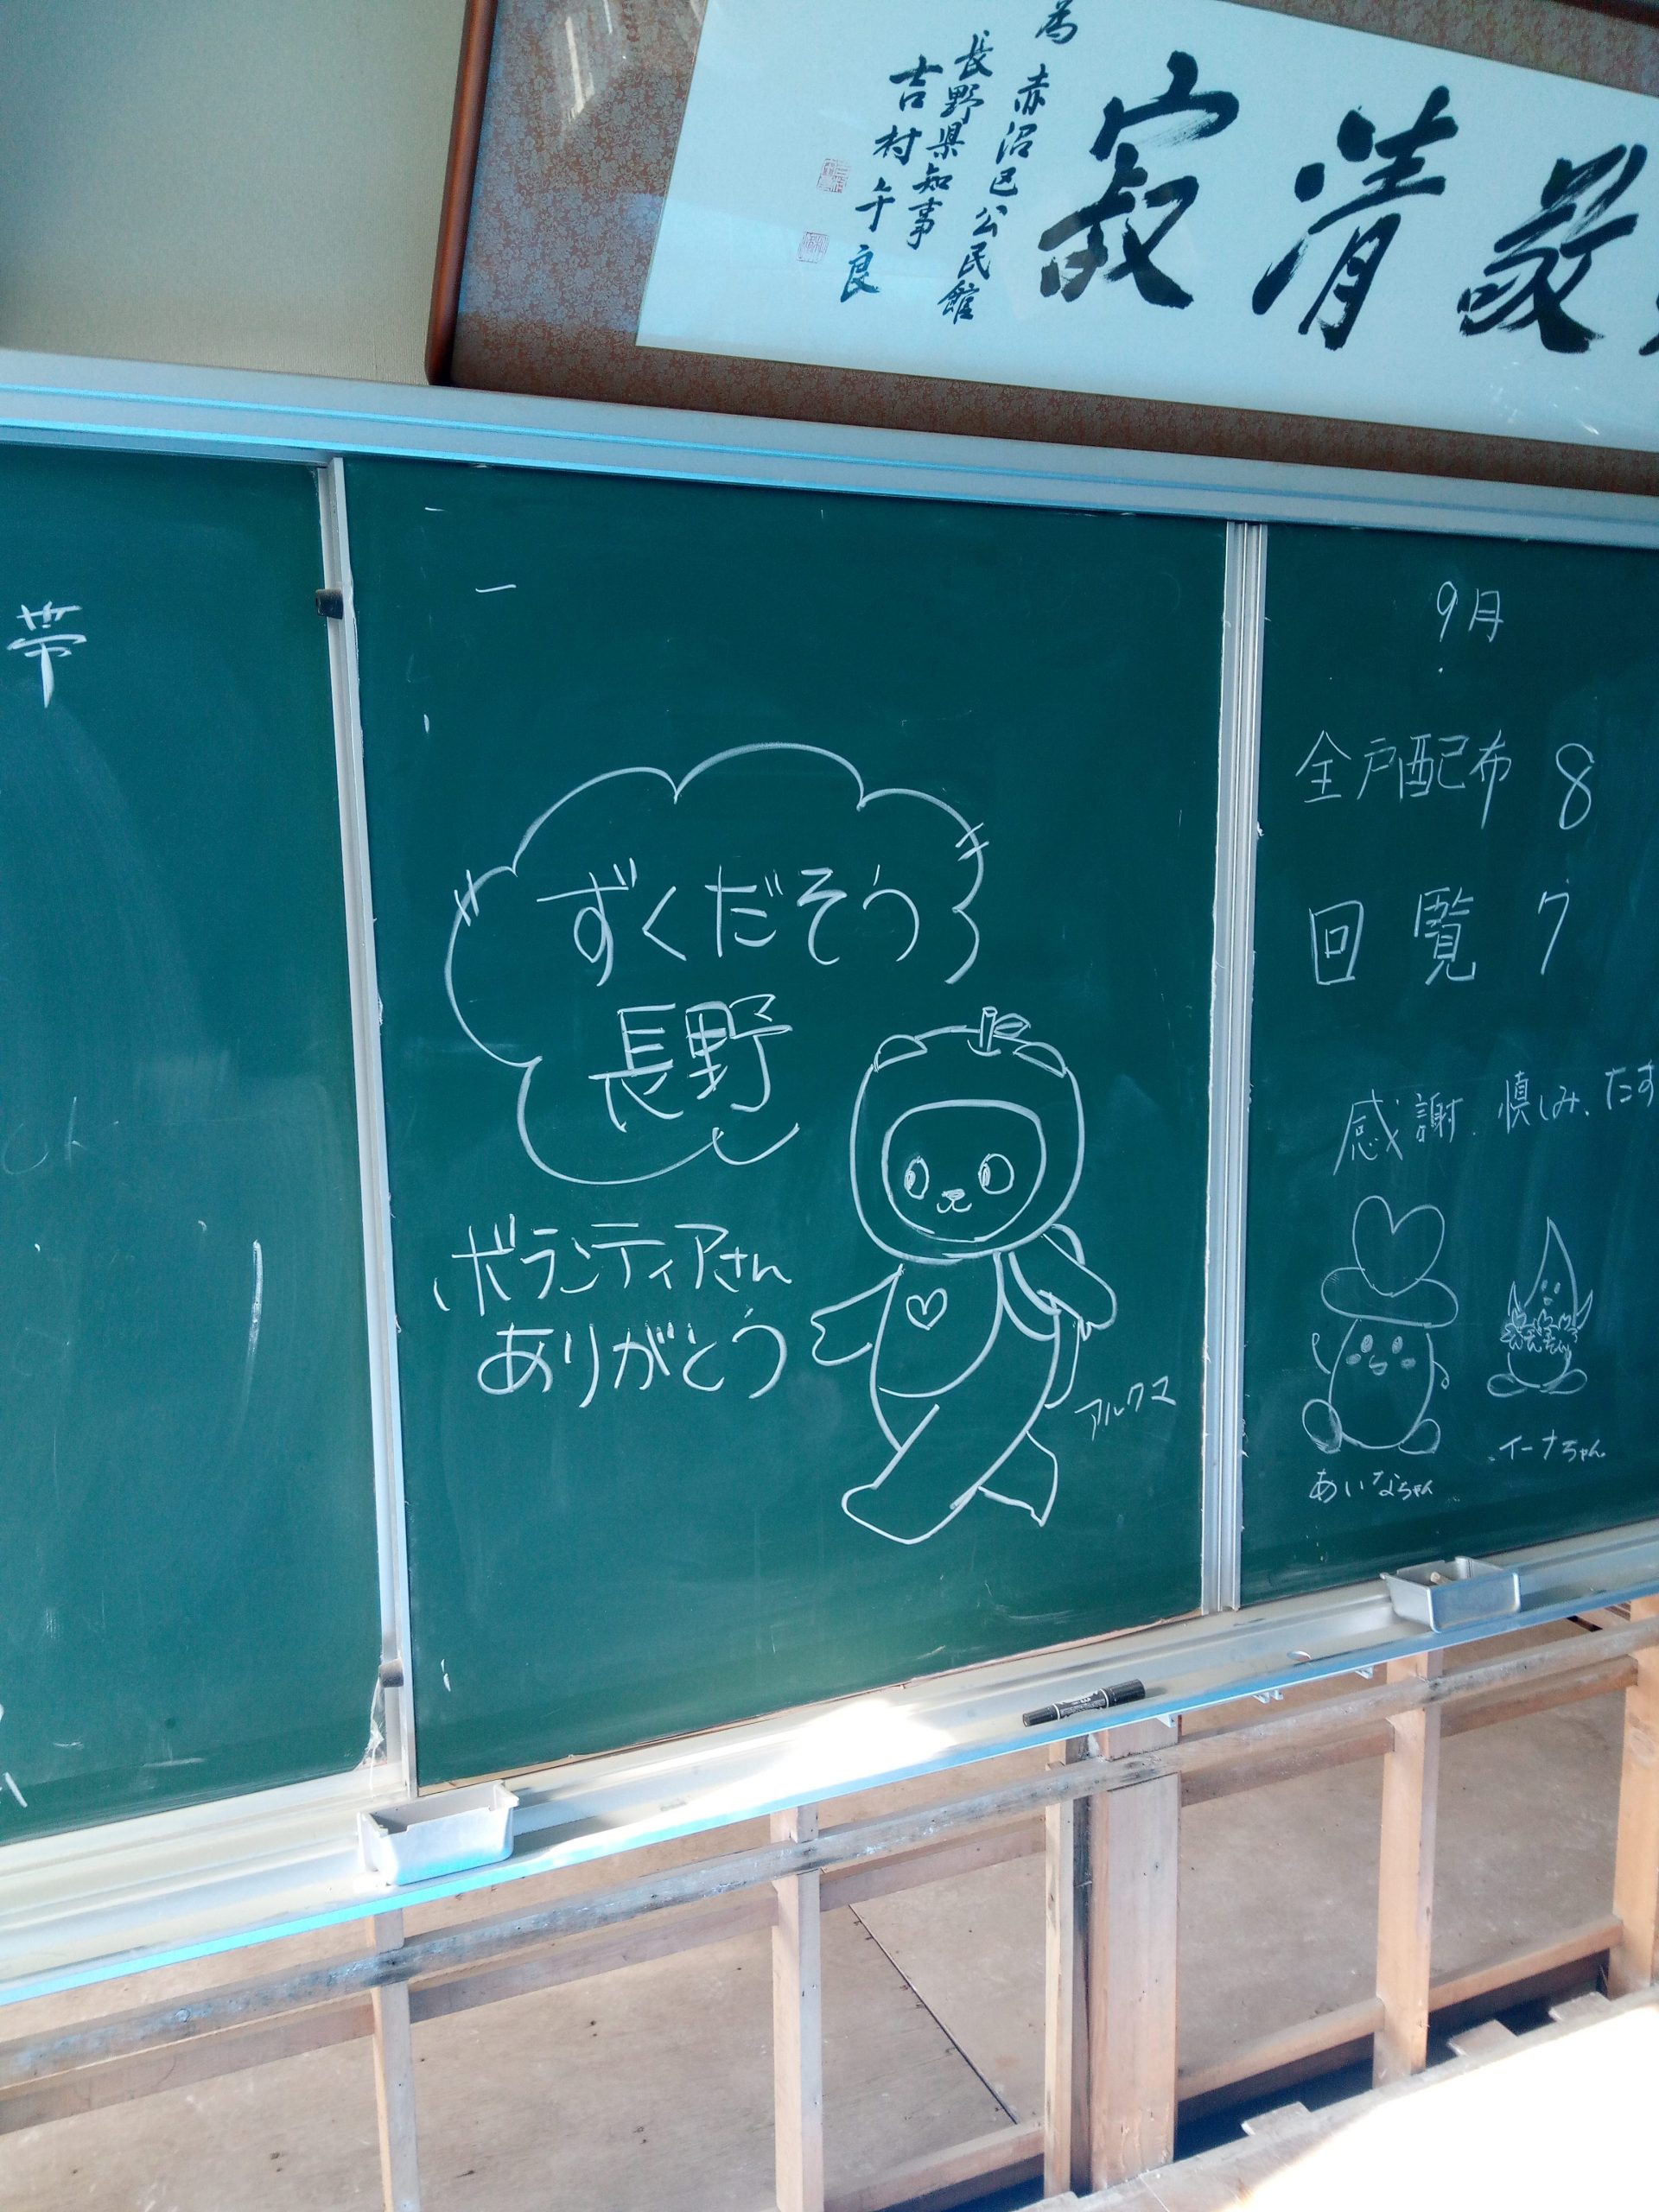 敬清寂
為 赤沼区公民館
長野県知事
吉村午良
帯
ずくだそう
長野
ボランティアさん
ありがとう
アルクマ
9月
全戸配布 8
回覧 7
感謝、慎しみ、たす
あいなちゃん
イーナちゃん